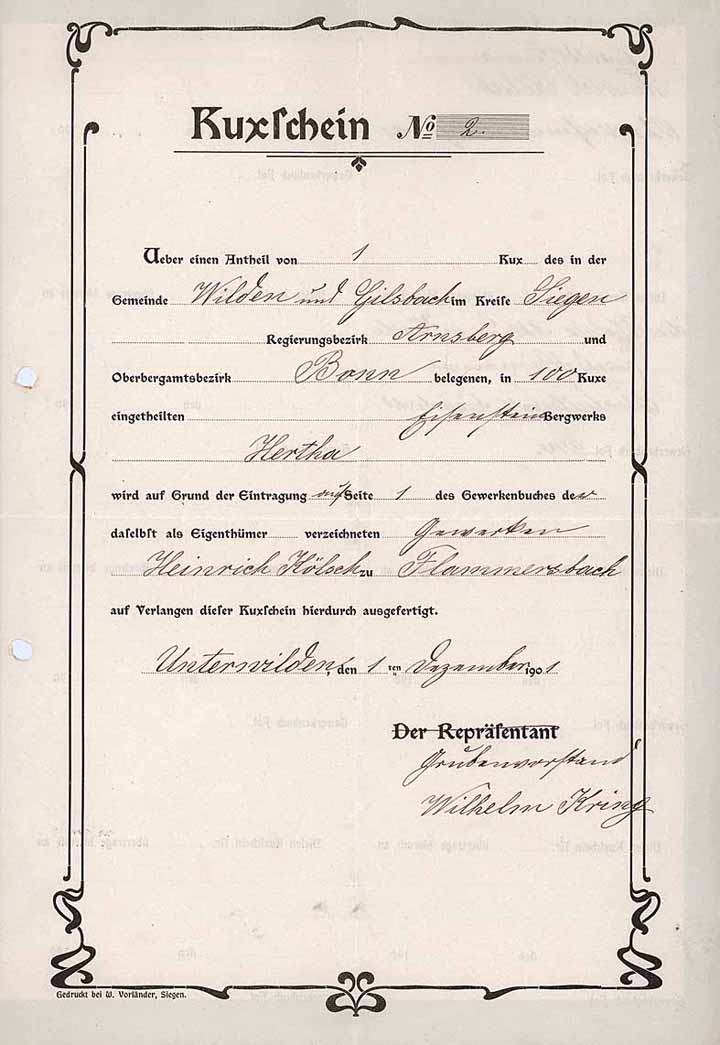 Kuxschein No 2.
Ueber einen Antheil von 1 Kux des in der
Gemeinde Wilden und Gilsbach im Kreise Siegen
Regierungsbezirk Arnsberg und
Oberbergamtsbezirk Bonn belegenen, in 100 Kuxe
eingetheilten Eisenstein Bergwerks
Hertha
wird auf Grund der Eintragung auf Seite 1 des Gewerkenbuches der
daselbst als Eigenthümer verzeichneten Gewerken
Heinrich Kölsch zu Flammersbach
auf Verlangen dieser Kuxschein hierdurch ausgefertigt.
Unterwilden, den 1ten Dezember 1901
Der Repräsentant
Grubenvorstand
Wilhelm Kring
Gedruckt bei W. Vorländer, Siegen.